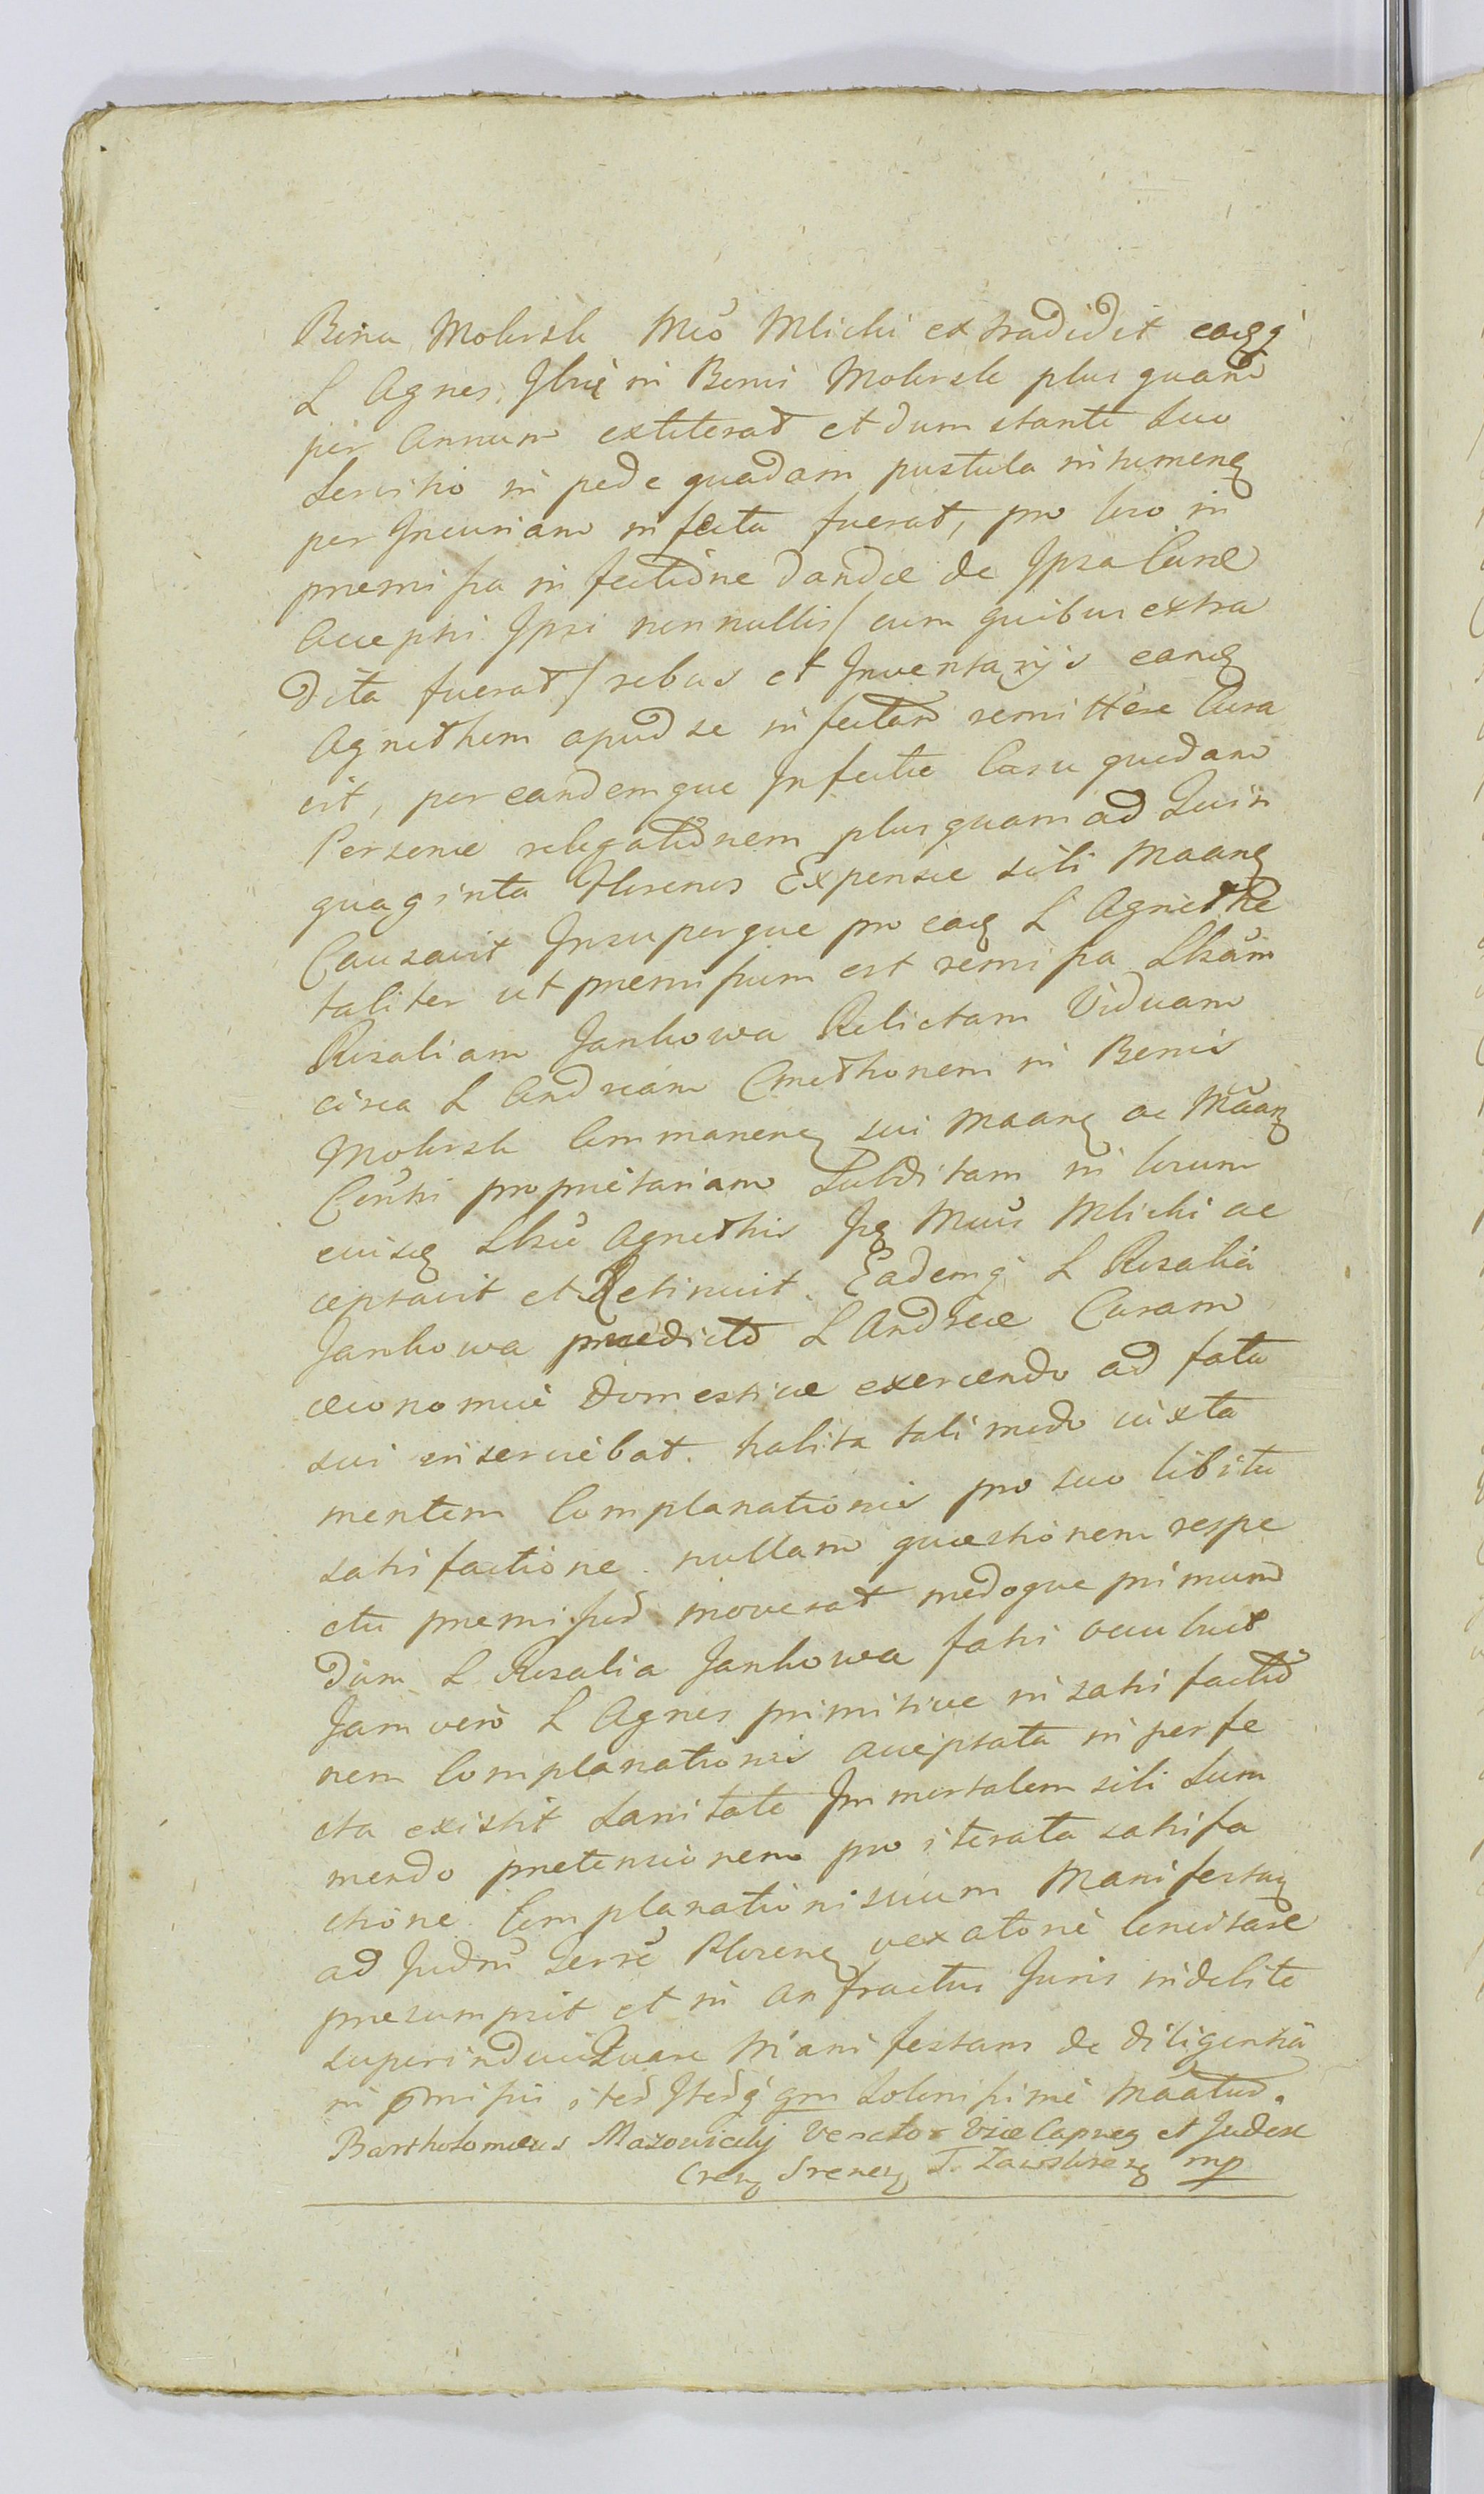 Bina Mokrsk Mco Mlicki extradidit eaqq
L Agnes, Ibiq in Bonis Mokrsk plus quam
per Annum extiterat et dum stante suo
servitio in pede quadam pustula intumeng
per Incuriam infecta fuerat, pro loco in
premissa infectione dandæ de Ipsa Curæ
Accepti Ipsi nonnullis/ cum quibus extra
dita fuerat/ rebus et Inventarijs eang
Agnethem apud se infectam remittere Cura
vit, per eandemque Infectæ Casu quodam
Personæ relegationem plusquam ad Quin
quaginta Florenos Expensæ sibi Maang
Causavit Insuperque pro eaq L Agnethe
taliter ut premissum est remissa Lbsam
Rosaliam Jankowa Relictam Viduam
circa L Andream Cmethonem in Bonis
Mokrsk Commaneng sui Maang ac Maang
Censti proprietariam Subditam in locum
eiusq Lbse Agnethis Iq Mcus Mlicki ac
ceptavit et Retinuit. Eademq L Rosalia
Jankowa prædicto L Andreæ Curam
œconomiæ domesticæ exercendo ad fata
sui inserviebat. habita tali modo iuxta
mentem Complanationis pro suo libitu
satisfactione. nullam quæstionem respe
ctu premissod moverat modoque primum
dum L Rosalia Jankowa fatis occubuit
Jam vero L Agnes primitive in satisfactio
nem Complanationis acceptata in perfe
cta existit Sanitate Immortalem sibi Sum
mendo pretensionem pro iterata satisfa
ctione. Complanationis suum Manifestang
ad Judm Terre vexatone
presumpsit et in anfractus Juris indebite
Manifestans de diligentia
in solenissime Maatur.
Bartholomæus Mazowicckj Venator Viæ Capneg et Judex
mp